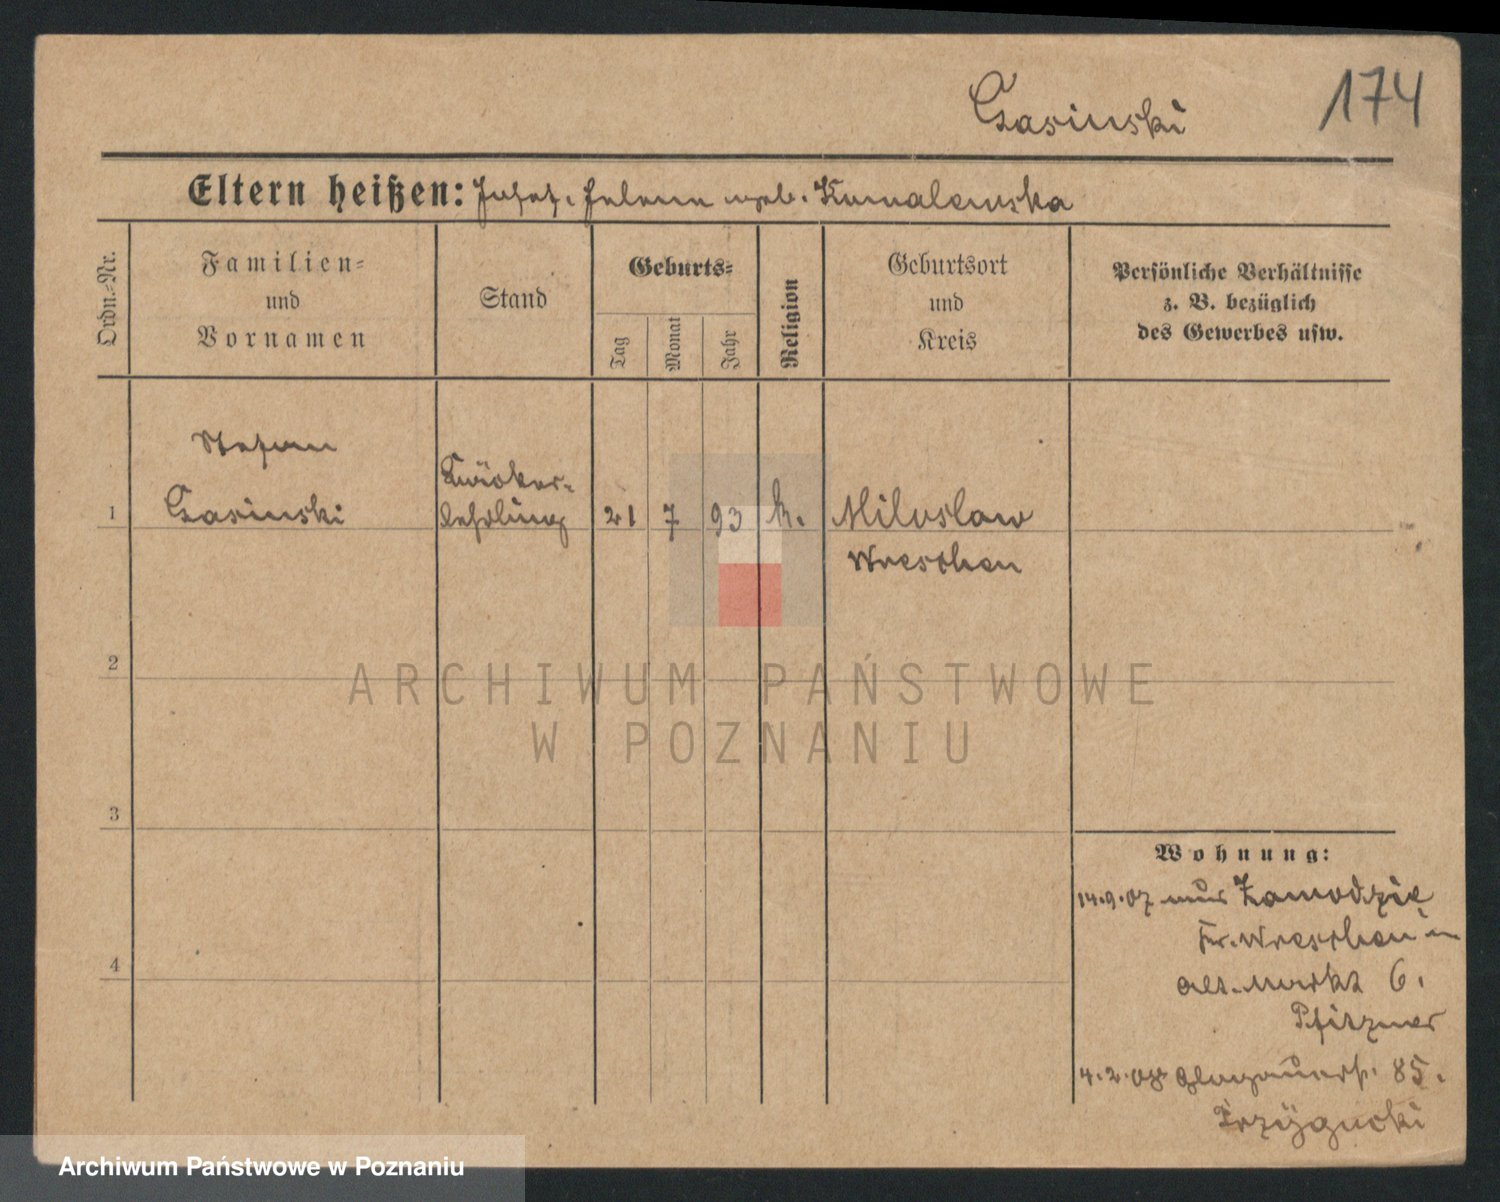 Gasinski 174
Eltern heißen: Josef. Helene geb. Kowalewska
Ordn.-Nr.
Familien-
und
Vornamen
Stand
Geburts-
Tag
Monat
Jahr
Religion
Geburtsort
und
Kreis
Persönliche Verhältnisse
z. B. bezüglich
des Gewerbes usw.
Stefan
Bäcker-
1 Gasinski lehrling 21 7 93 k. Miloslaw
Wreschen
2
ARCHIWUM PAŃSTWOWE
W POZNANIU
3
Wohnung:
14.9.07 aus Zawodzie
Kr. Wreschen in
4
Alt. Markt 6.
Pfitzner
4.2.08 Glogauerstr. 85.
Archiwum Państwowe w Poznaniu